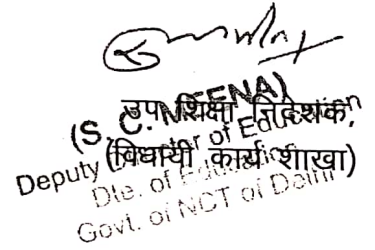 (S. C. MEENA)
उप शिक्षा निदेशक,
Deputy Director of Education
(विधायी कार्य शाखा)
Dte. of Education
Govt. of NCT of Delhi